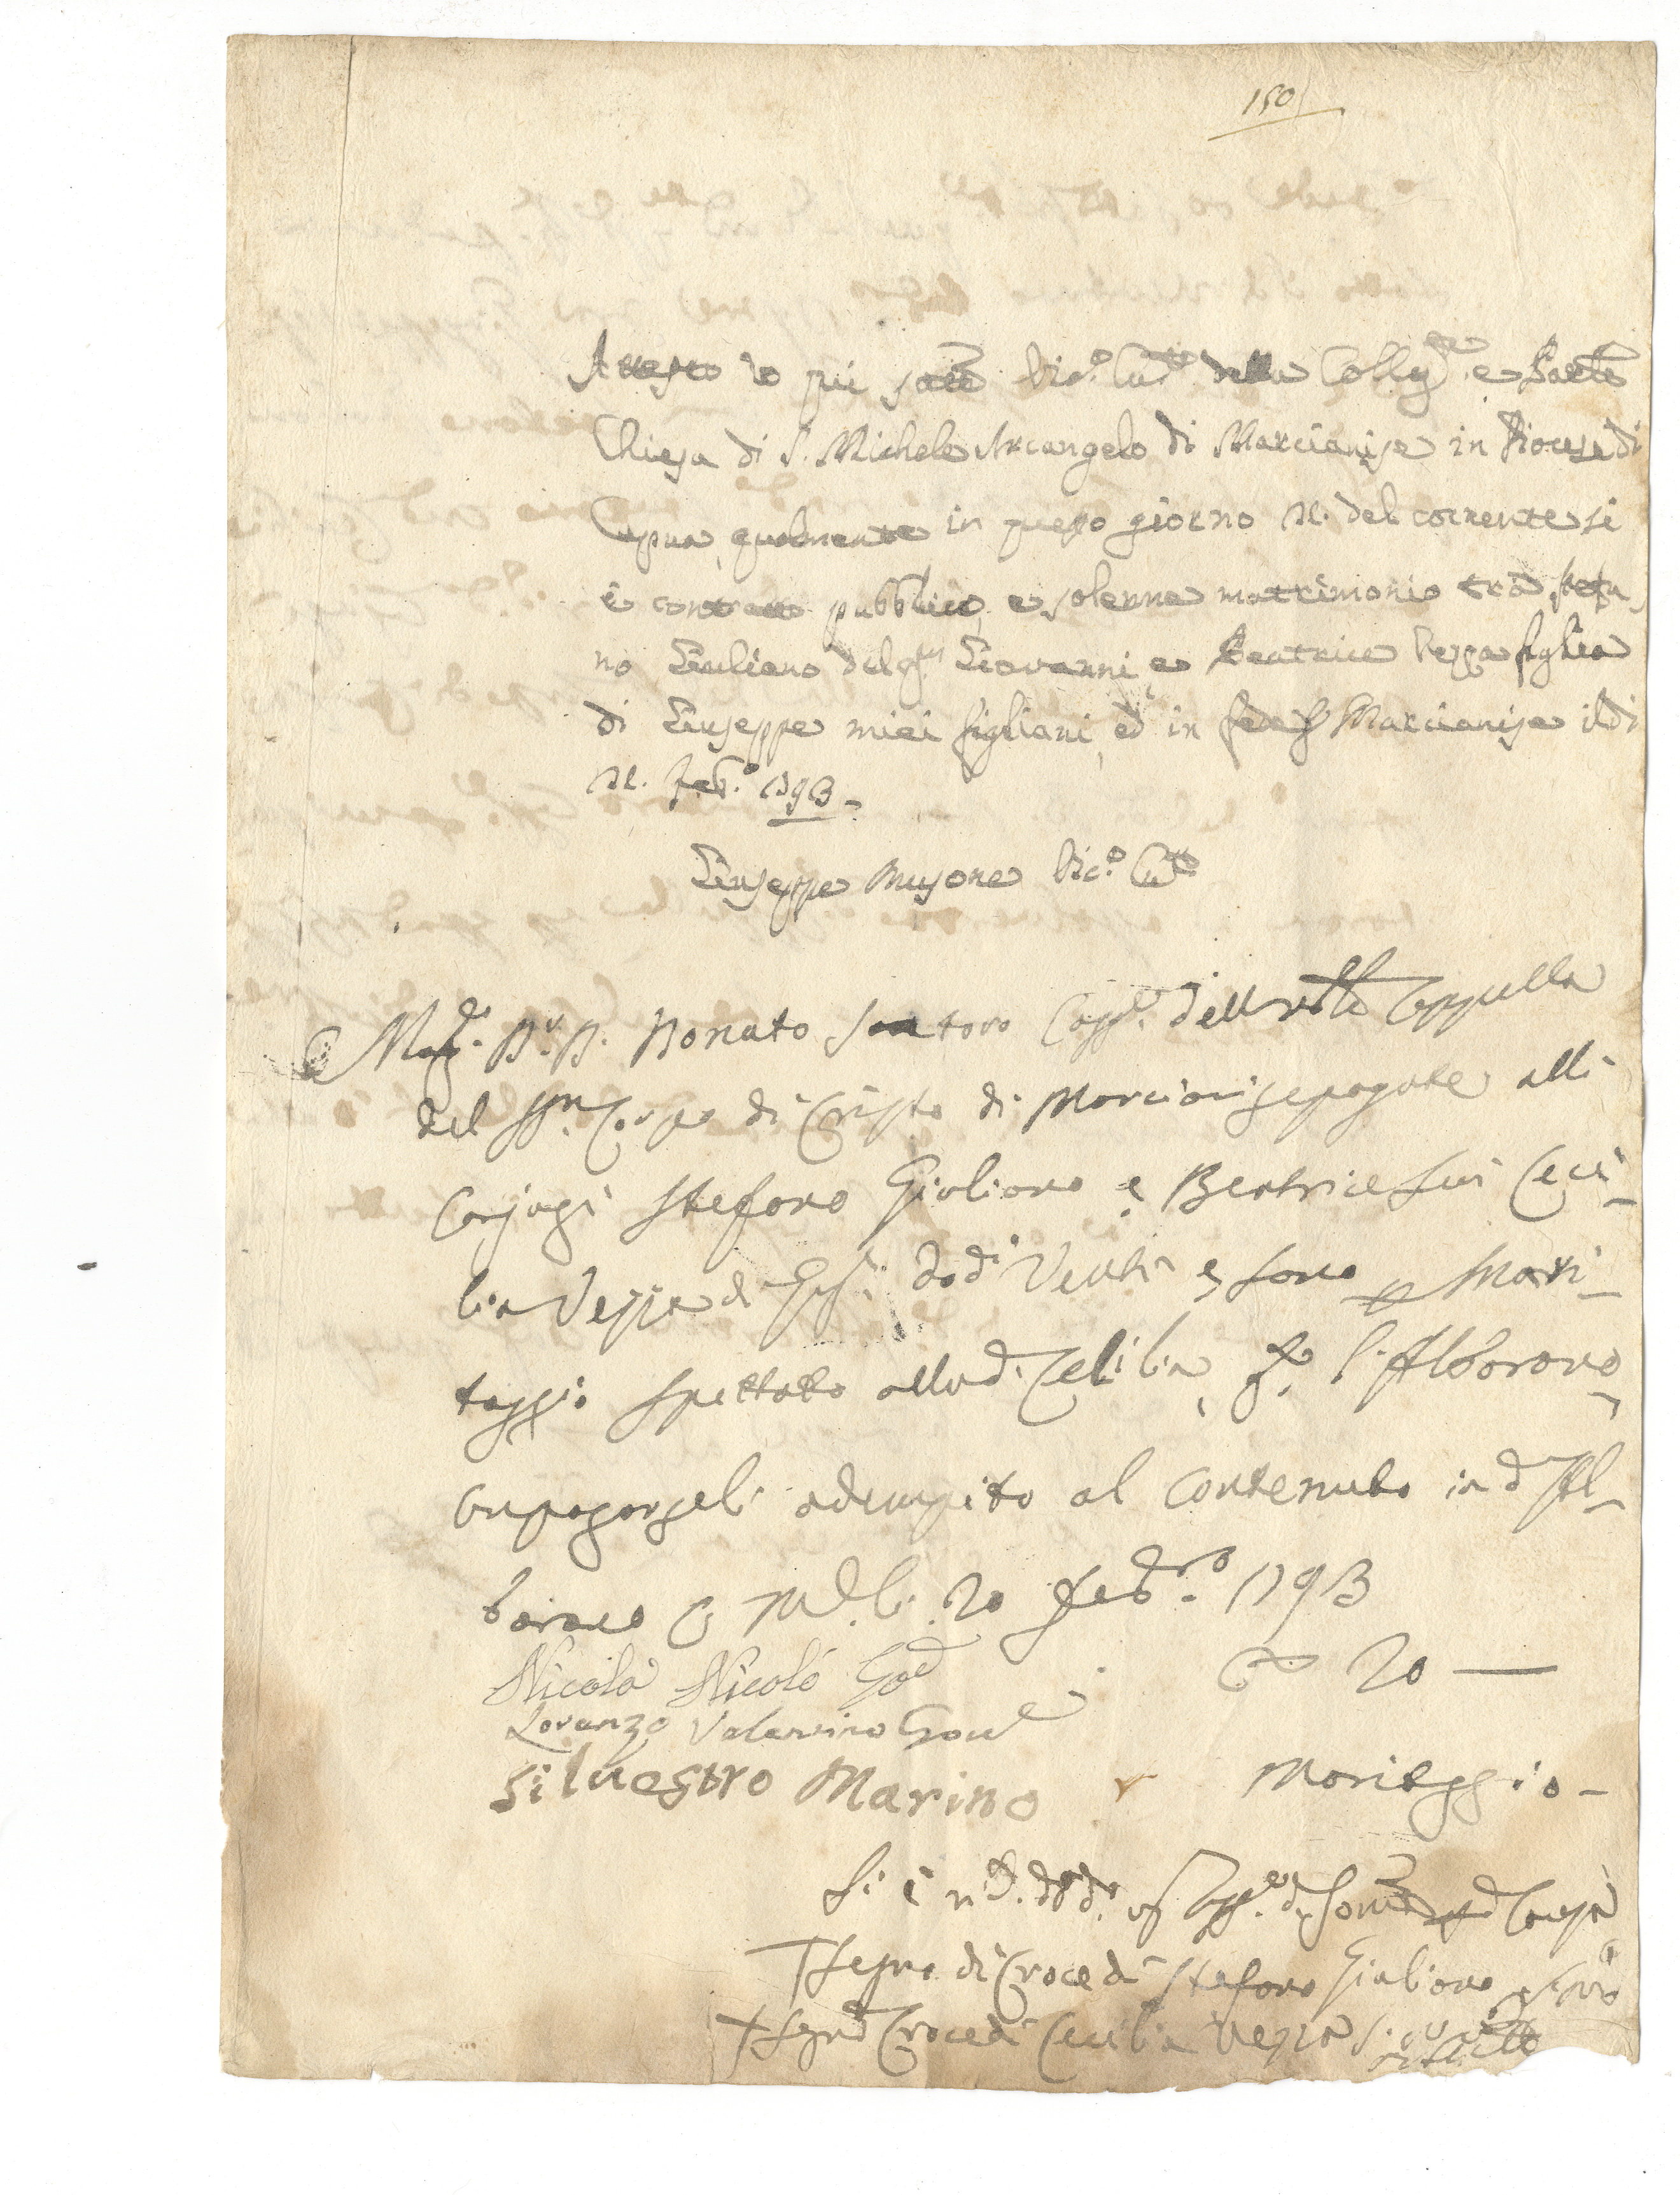 150
Attesto io qui sotto Vic.º Cur.to della Colleg.ta e Par.le
Chiesa di S. Michele Arcangelo di Marcianise in Diocesi di
Capua, qualmente in questo giorno 11. del corrente si
è contratto pubblico, e solenne matrimonio tra Stefa
no Giuliano del q.m Giovanni, e Beatrice Vezza figlia
di Giuseppe miei figliani, ed in fede Marcianise il dì
11. Feb.º 1793 -
Giuseppe Musone Vic.º Cur.to
Mag.co D.r D. Donato Santoro Capp. della Cappella
del SS.mo Corpo di Cristo di Marcianise pagate alli
Conjugi Stefano Giuliano e Beatrice seu Ceci-
lia Vezza di Gius.e doc.ti Venti e sono p Mari-
taggio spettato alla d. Cecilia, p. l'Alborano
adempito al contenuto in d. Al-
borano 20 Feb.ro 1793
Nicola Nicolò Gov.e 20 —
Lorenzo Valentino Gov.e
Silvestro Marino Maritaggio -
Si è
† Segno di Croce di Stefano Giuliano
† Segno di Croce di Cecilia Vezza